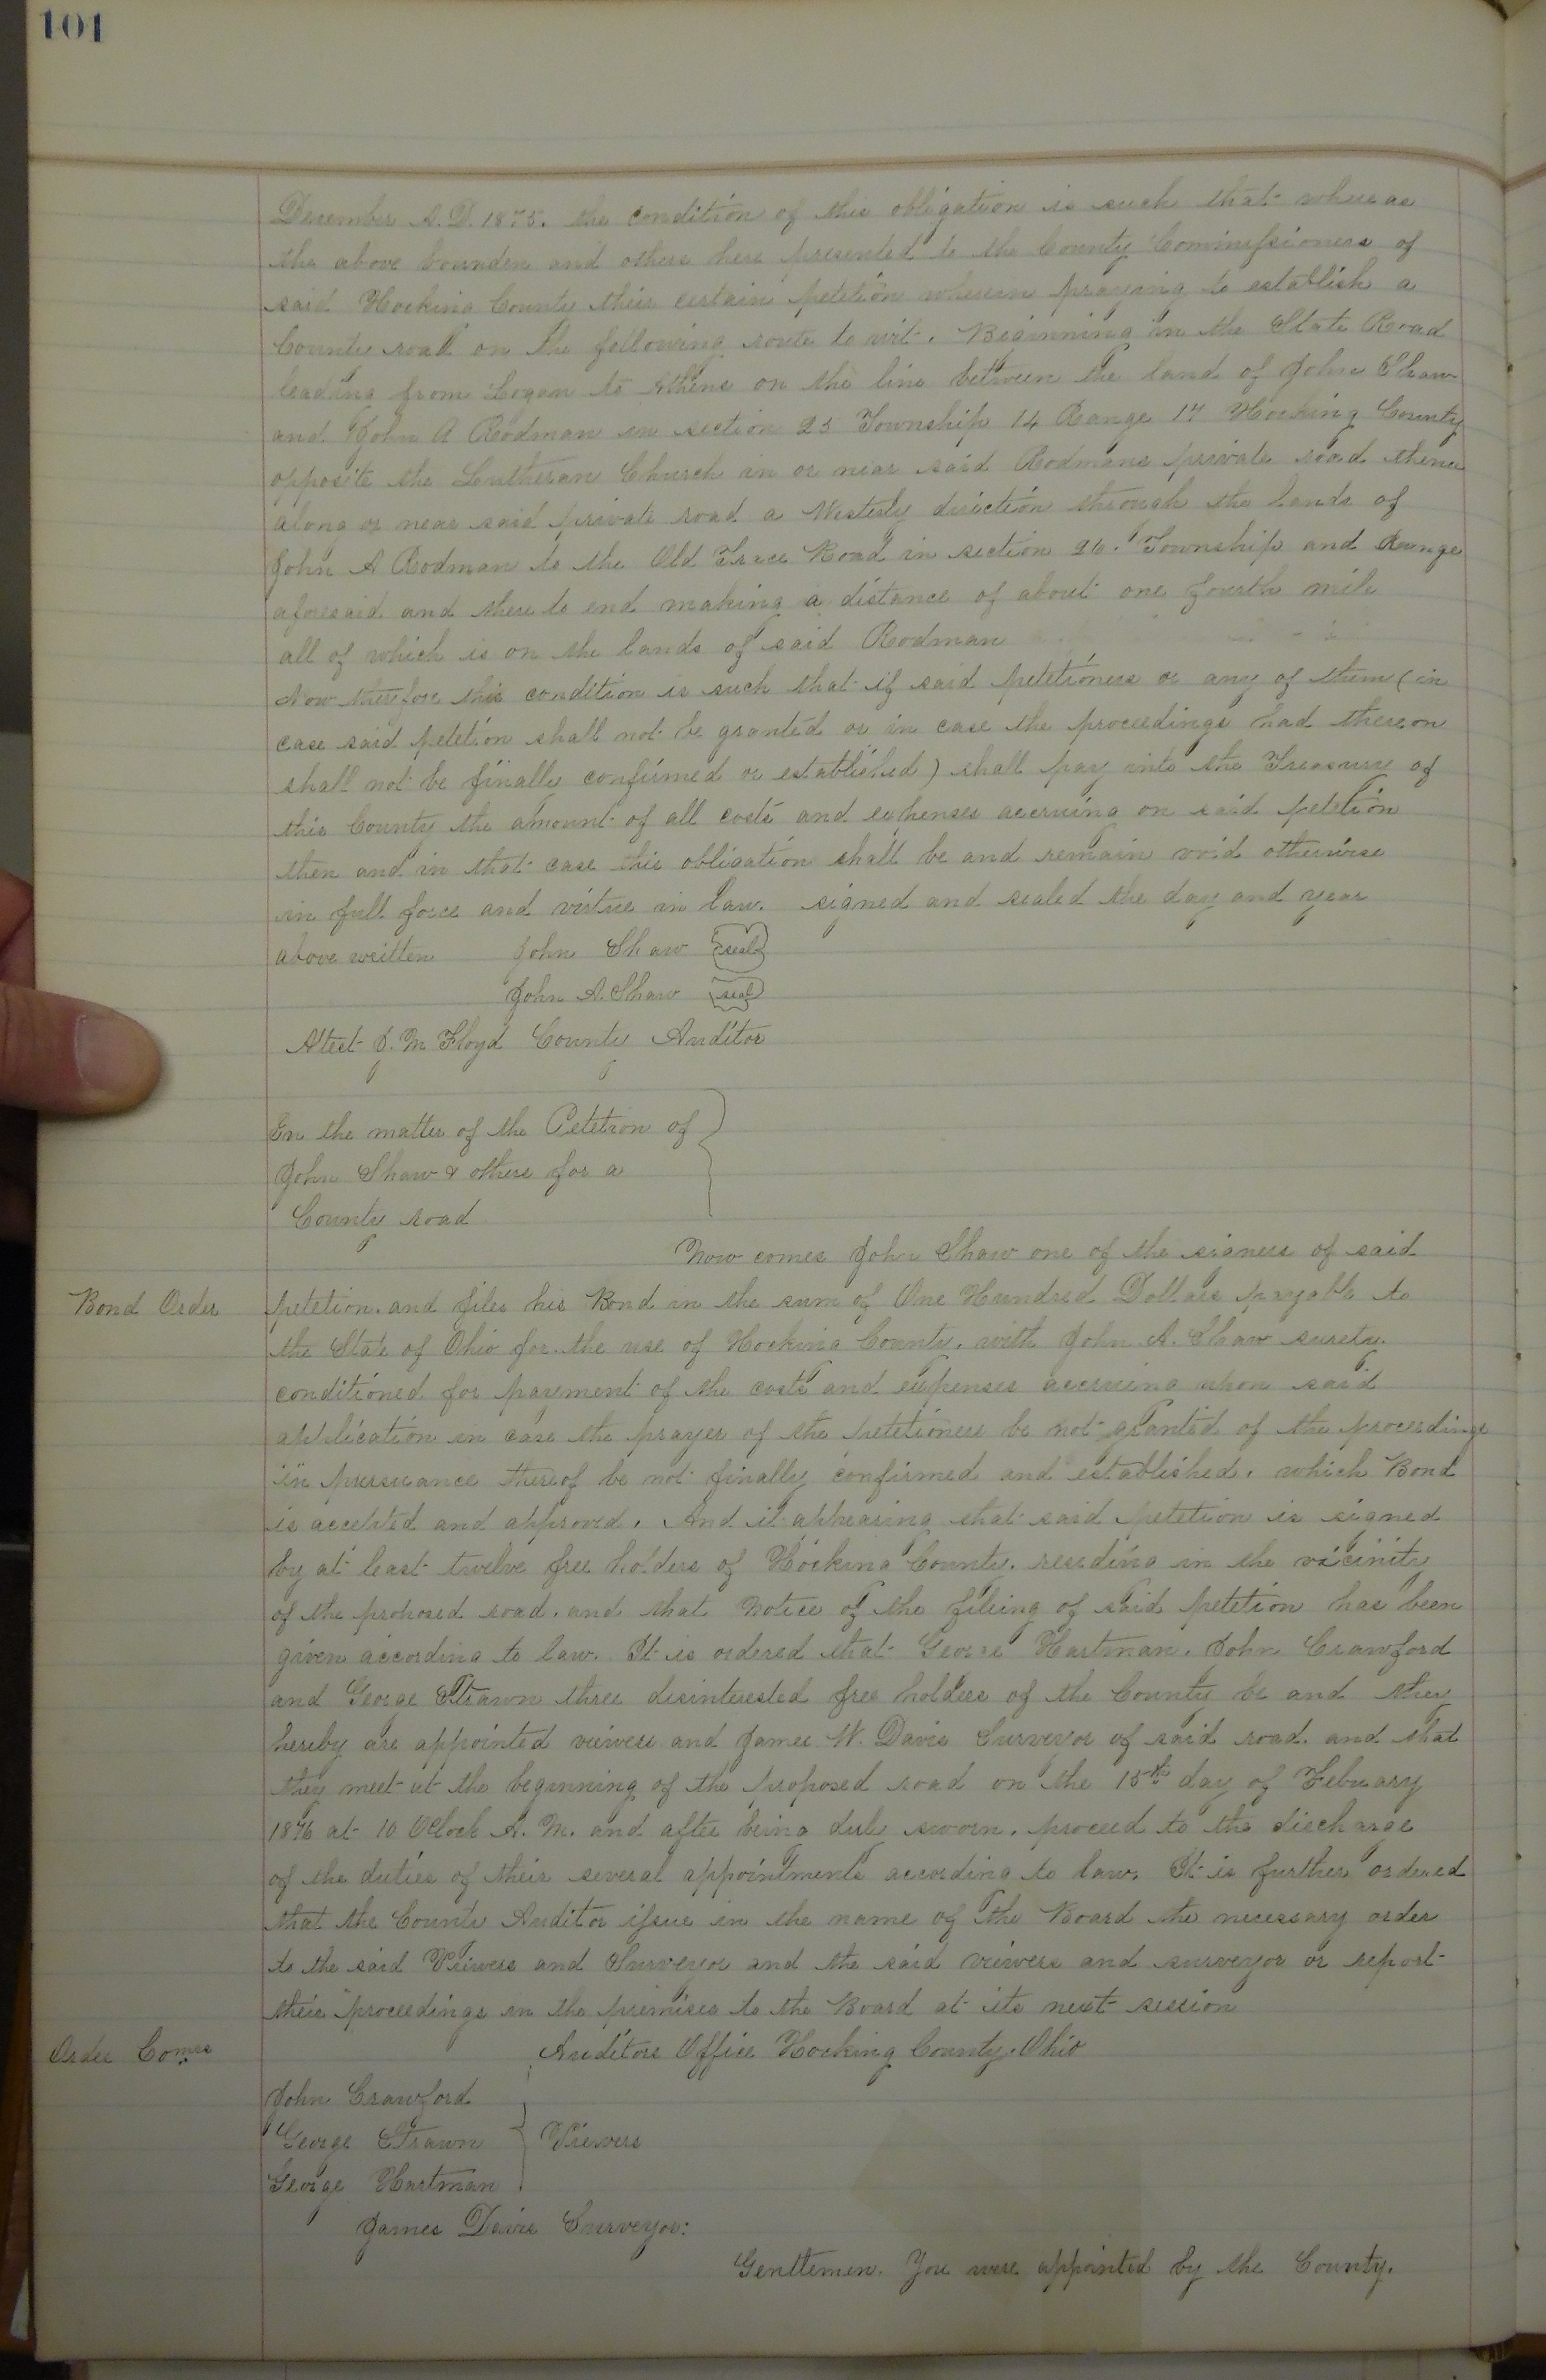 101
December A. D. 1875. the condition of this obligation is such that whereas
the above bounden and others have presented to the County Commissioners of
said Hocking County their certain petetion wherein praying to establish a
County road on the following route to wit. Beginning in the State Road
leading from Logan to Athens on the line between the land of John Shaw
and John A Rodman in section 25 Township 14 Range 17 Hocking County
opposite the Lutheran Church in or near said Rodmans private road thence
along or near said private road a Westerly direction through the lands of
John A Rodman to the Old Trace Road in section 26. Township and Range
aforesaid and there to end making a distance of about one fourth mile
all of which is on the lands of said Rodman
Now therefore this condition is such that if said petetioners or any of them (in
case said petetion shall not be granted or in case the proceedings had thereon
shall not be finally confirmed or established) shall pay into the Treasury of
this County the amount of all costs and expenses accruing on said petetion
then and in that case this obligation shall be and remain void otherwise
in full force and virtue in law. signed and sealed the day and year
above written John Shaw seal
John A. Shaw seal
Attest J. M Floyd County Auditor
In the matter of the Petetion of
John Shaw & others for a
County road
Now comes John Shaw one of the signers of said
Bond Order
petetion. and files his Bond in the sum of One Hundred Dollars payable to
the State of Ohio for the use of Hocking County. with John A. Shaw surety.
conditioned for payment of the costs and expenses accruing upon said
application in case the prayer of the petetioners be not granted of the proceedings
in pursuance thereof be not finally confirmed and established. which Bond
is accepted and approved. And it appearing that said petetion is signed
by at least twelve free holders of Hocking County. residing in the vicinity
of the proposed road. and that Notice of the fileing of said petetion has been
given according to law. It is ordered that George Hartman. John Crawford
and George Strawn three disinterested free holders of the County be and they
hereby are appointed viewers and James W. Davis Surveyor of said road. and that
they meet at the beginning of the proposed road on the 15th day of Febuary
1876 at 10 OClock A. M. and after being duly sworn. proceed to the discharge
of the duties of their several appointments according to law. It is further ordered
that the County Auditor issue in the name of the Board the necessary order
to the said Viewers and Surveyor and the said viewers and surveyor or report
their proceedings in the premises to the Board at its next session
Order Comrs
Auditors Office Hocking County. Ohio
John Crawford
George Strawn Viewers
George Hartman
James Davis Surveyor:
Gentlemen. You were appointed by the County.